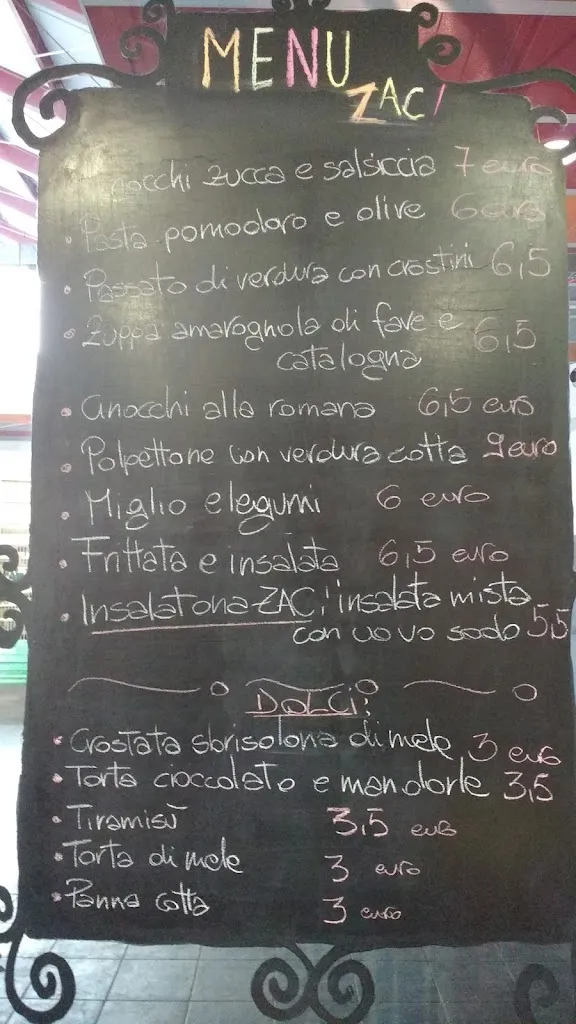 MENU
ZAC!
gnocchi zucca e salsiccia 7 euro
• Pasta pomodoro e olive 6 euro
• Passato di verdura con crostini 6,5
• Zuppa amarognola di fave e 6,5
catalogna
• Gnocchi alla romana 6,5 euro
• Polpettone con verdura cotta 9 euro
• Miglio e legumi 6 euro
• Frittata e insalata 6,5 euro
• Insalatona ZAC! insalata mista
con uovo sodo 5,5
DOLCI:
• Crostata sbrisolona di mele 3 euro
• Torta cioccolato e mandorle 3,5
• Tiramisù 3,5 euro
• Torta di mele 3 euro
• Panna cotta 3 euro